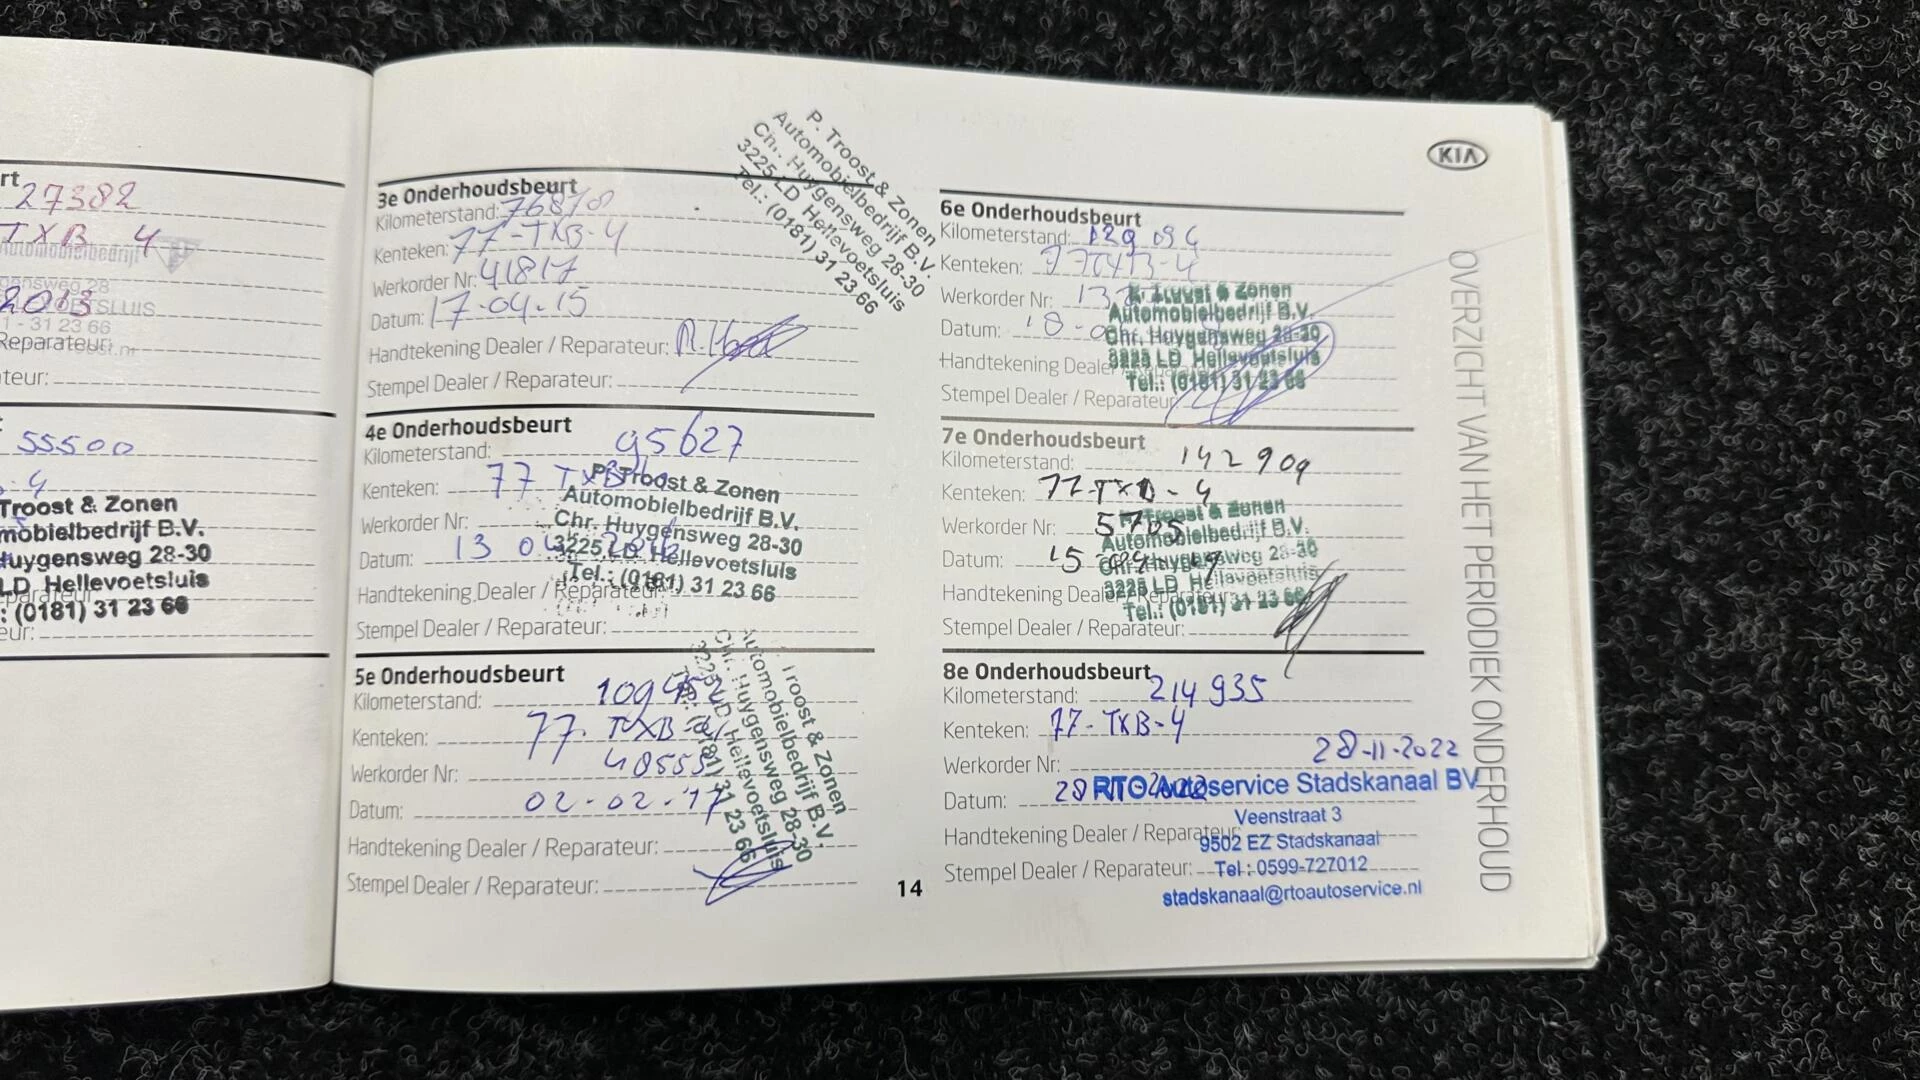 rt
27382
TXB 4
Automobielbedrijf
2013
31 23 66
Reparateur:
teur:
55500
4
Troost & Zonen
mobielbedrijf B.V.
Huygensweg 28-30
LD Hellevoetsluis
: (0181) 31 23 66
eur:
P. Troost & Zonen
Automobielbedrijf B.V.
Chr. Huygensweg 28-30
3225 LD Hellevoetsluis
Tel.: (0181) 31 23 66
3e Onderhoudsbeurt
Kilometerstand: 76870
Kenteken: 77-TXB-4
Werkorder Nr: 41817
Datum: 17-04-15
Handtekening Dealer / Reparateur:
Stempel Dealer / Reparateur:
4e Onderhoudsbeurt
Kilometerstand: 95627
Kenteken: 77 TXB
Werkorder Nr:
Datum: 13 04
Handtekening Dealer / Reparateur:
Stempel Dealer / Reparateur:
P. Troost & Zonen
Automobielbedrijf B.V.
Chr. Huygensweg 28-30
3225 LD Hellevoetsluis
Tel.: (0181) 31 23 66
5e Onderhoudsbeurt
Kilometerstand:
Kenteken: 77-TXB-4
Werkorder Nr: 48555
Datum: 02-02-'17
Handtekening Dealer / Reparateur:
Stempel Dealer / Reparateur:
Troost & Zonen
Automobielbedrijf B.V.
Chr. Huygensweg 28-30
3225 LD Hellevoetsluis
Tel.: (0181) 31 23 66
14
KIA
6e Onderhoudsbeurt
Kilometerstand:
Kenteken:
Werkorder Nr:
Datum:
Handtekening Dealer
Stempel Dealer / Reparateur:
P. Troost & Zonen
Automobielbedrijf B.V.
Chr. Huygensweg 28-30
3225 LD Hellevoetsluis
Tel.: (0181) 31 23 66
7e Onderhoudsbeurt
Kilometerstand: 142909
Kenteken: 77-TXB-4
Werkorder Nr: 5705
Datum: 15
Handtekening Dealer / Reparateur:
Stempel Dealer / Reparateur:
P. Troost & Zonen
Automobielbedrijf B.V.
Chr. Huygensweg 28-30
3225 LD Hellevoetsluis
Tel.: (0181) 31 23 66
8e Onderhoudsbeurt
Kilometerstand: 214935
Kenteken: 77-TXB-4
Werkorder Nr: 28-11-2022
Datum: 28
Handtekening Dealer / Reparateur:
Stempel Dealer / Reparateur:
RTO Autoservice Stadskanaal BV
Veenstraat 3
9502 EZ Stadskanaal
Tel: 0599-727012
stadskanaal@rtoautoservice.nl
OVERZICHT VAN HET PERIODIEK ONDERHOUD